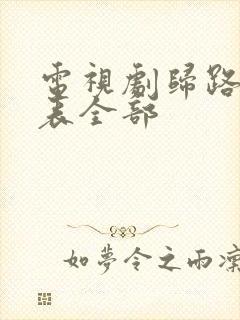 電視劇歸路
表全部
如夢令之雨凜